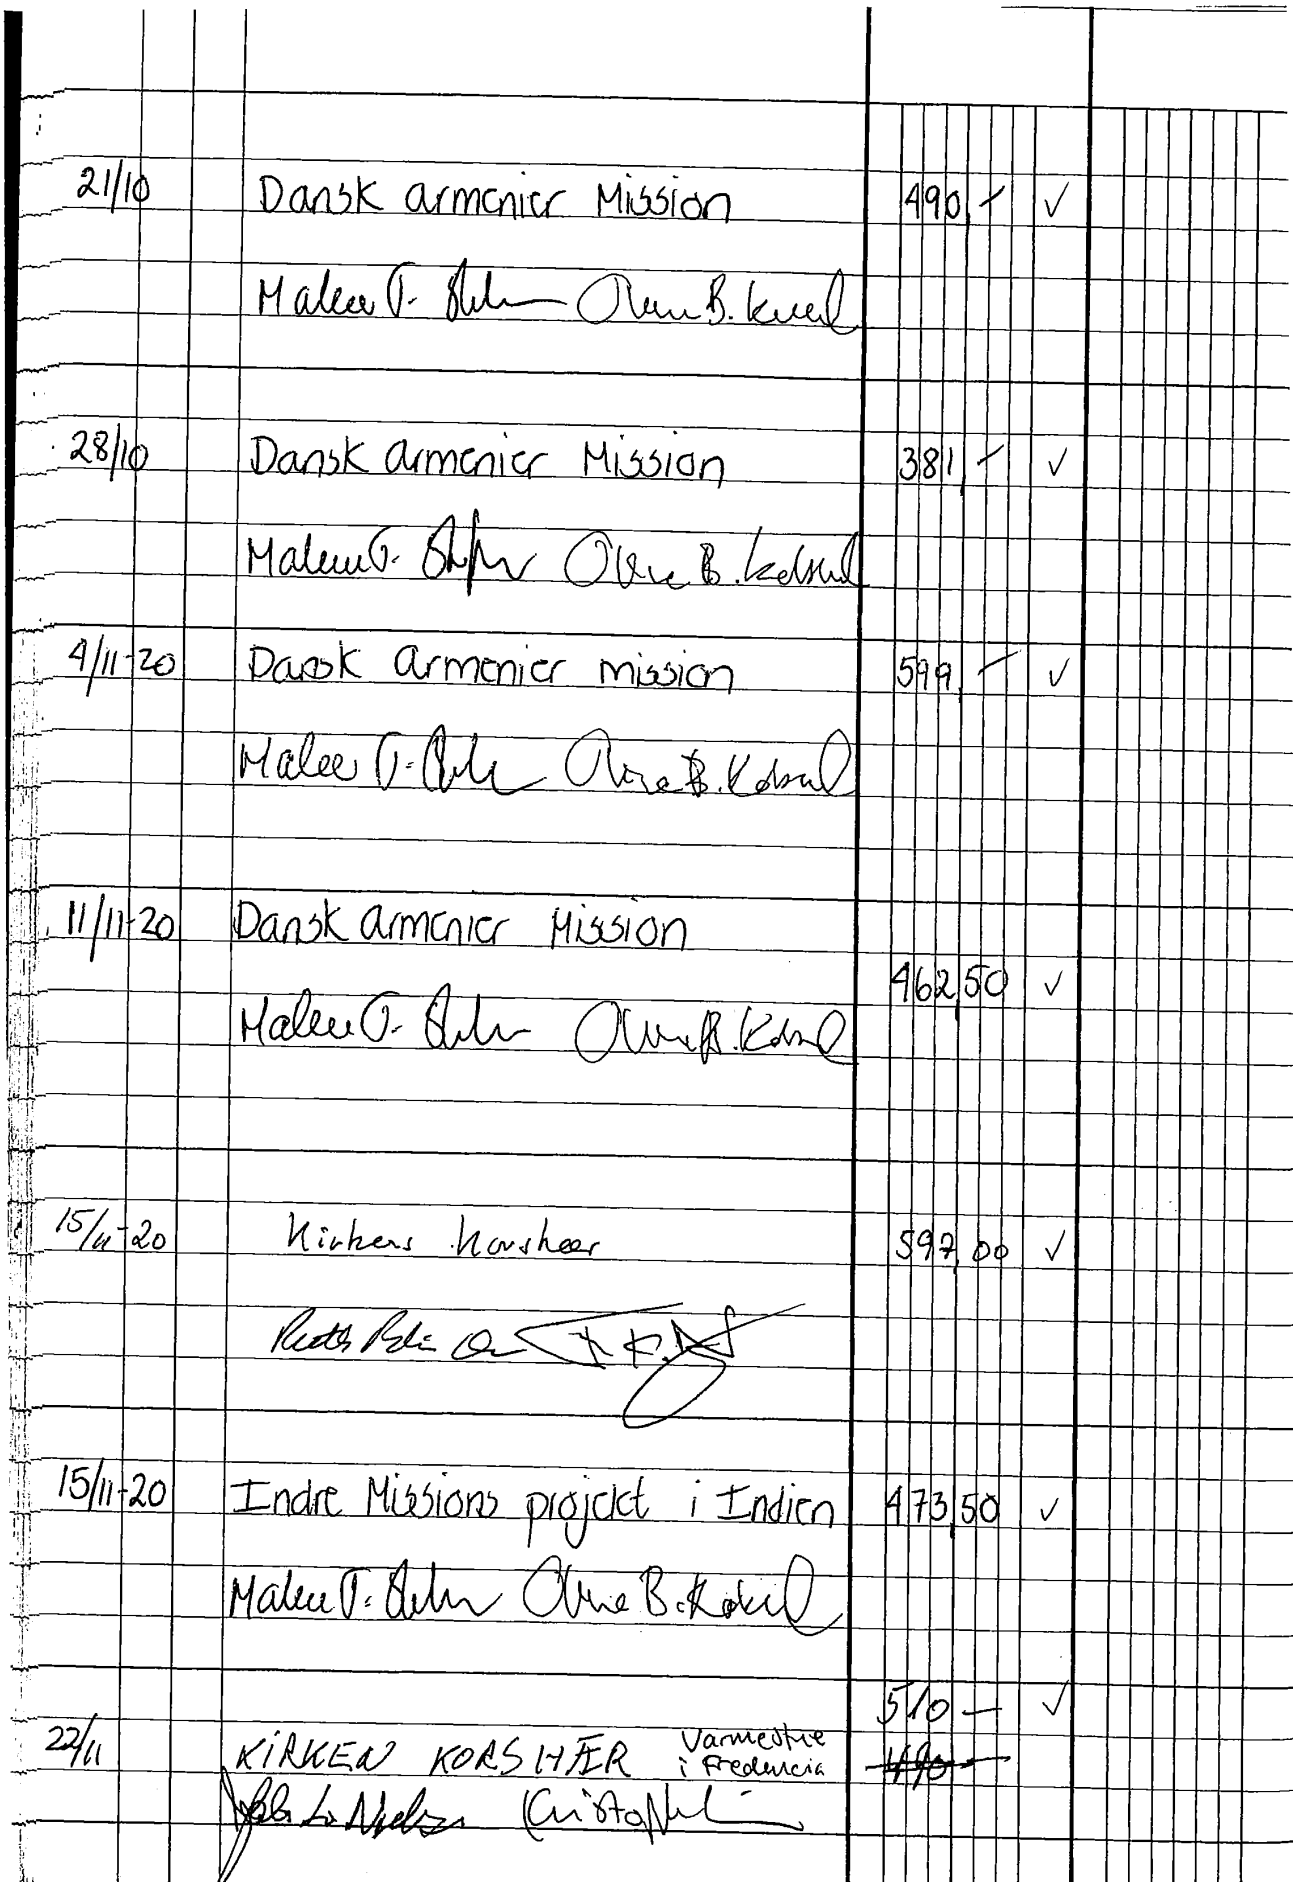 21/10 Dansk armenier Mission 490,- ✓
Malene T.
28/10 Dansk armenier Mission 381,- ✓
Malene T. B.
4/11-20 Dansk armenier mission 599,- ✓
Malene T. B.
11/11-20 Dansk armenier Mission
462,50 ✓
Malene T. B.
15/11-20 Kirkens Korshær 597,00 ✓
Ruth
15/11-20 Indre Missions projekt i Indien 473,50 ✓
Malene T. B.
510 - ✓
22/11 KIRKEN KORSHÆR Varmestue
i Fredericia 490-